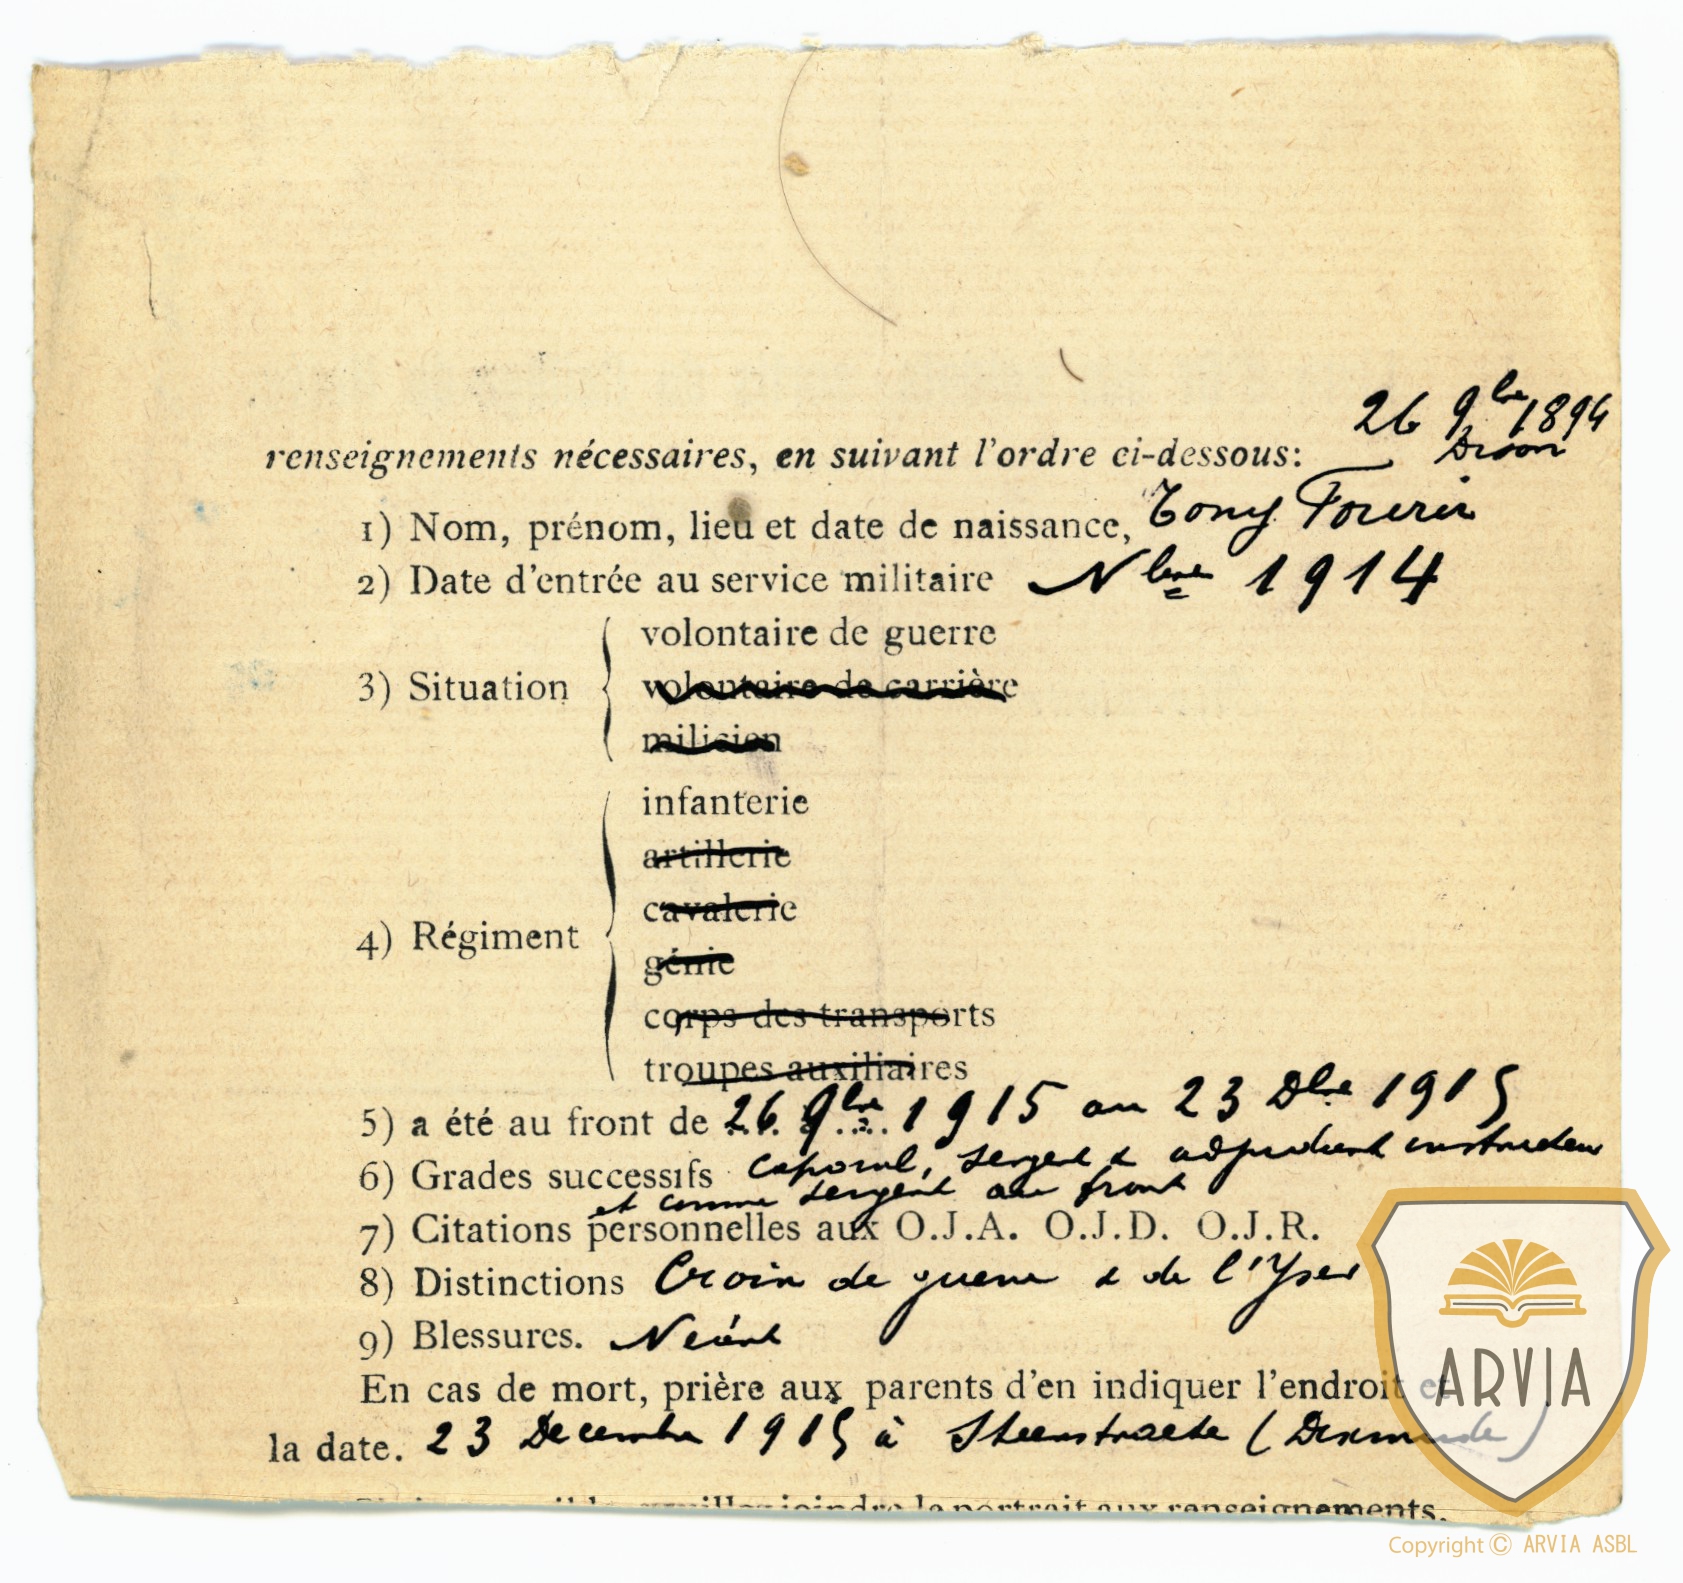 26 9bre 1894
renseignements nécessaires, en suivant l'ordre ci-dessous: Dison
1) Nom, prénom, lieu et date de naissance, Tony Fourir
2) Date d'entrée au service militaire Nbre 1914
volontaire de guerre
3) Situation volontaire de carrière
milicien
infanterie
artillerie
cavalerie
4) Régiment
génie
corps des transports
troupes auxiliaires
5) a été au front de 26 9bre 1915 au 23 Dbre 1915
6) Grades successifs caporal, sergent & adjudant instructeur
et comme sergent au front
7) Citations personnelles aux O.J.A. O.J.D. O.J.R.
8) Distinctions Croix de guerre & de l'Yser
9) Blessures. Néant
En cas de mort, prière aux parents d'en indiquer l'endroit et
la date. 23 Decembre 1915 à Steenstraete (Dixmude)
joindre le portrait aux renseignements.
ARVIA
Copyright © ARVIA ASBL